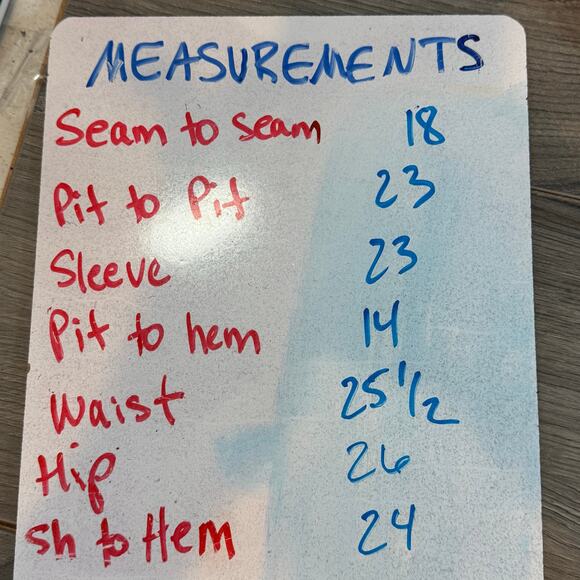 MEASUREMENTS
Seam to Seam 18
Pit to Pit 23
Sleeve 23
Pit to hem 14
Waist 25 1/2
Hip 26
sh to Hem 24